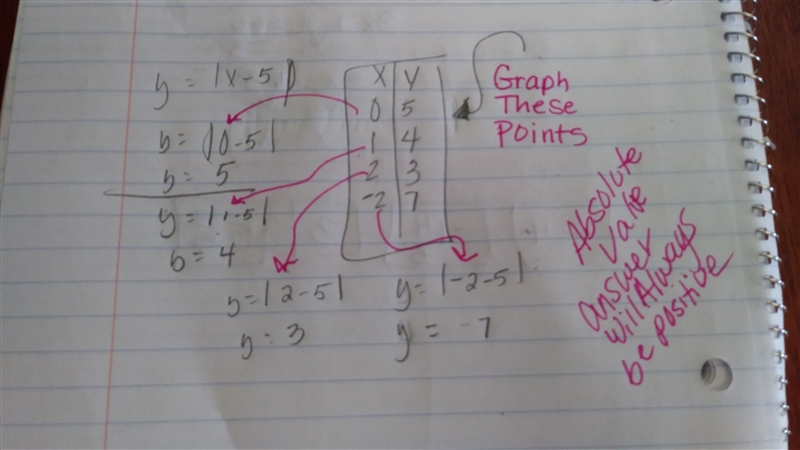 y = |x-5|
y = |0-5|
y = 5
y = |1-5|
y = 4
y = |2-5|
y = 3
x y
0 5
1 4
2 3
-2 7
y = |-2-5|
y = -7
Graph
These
Points
Absolute
Valve
answer
will Always
be positive